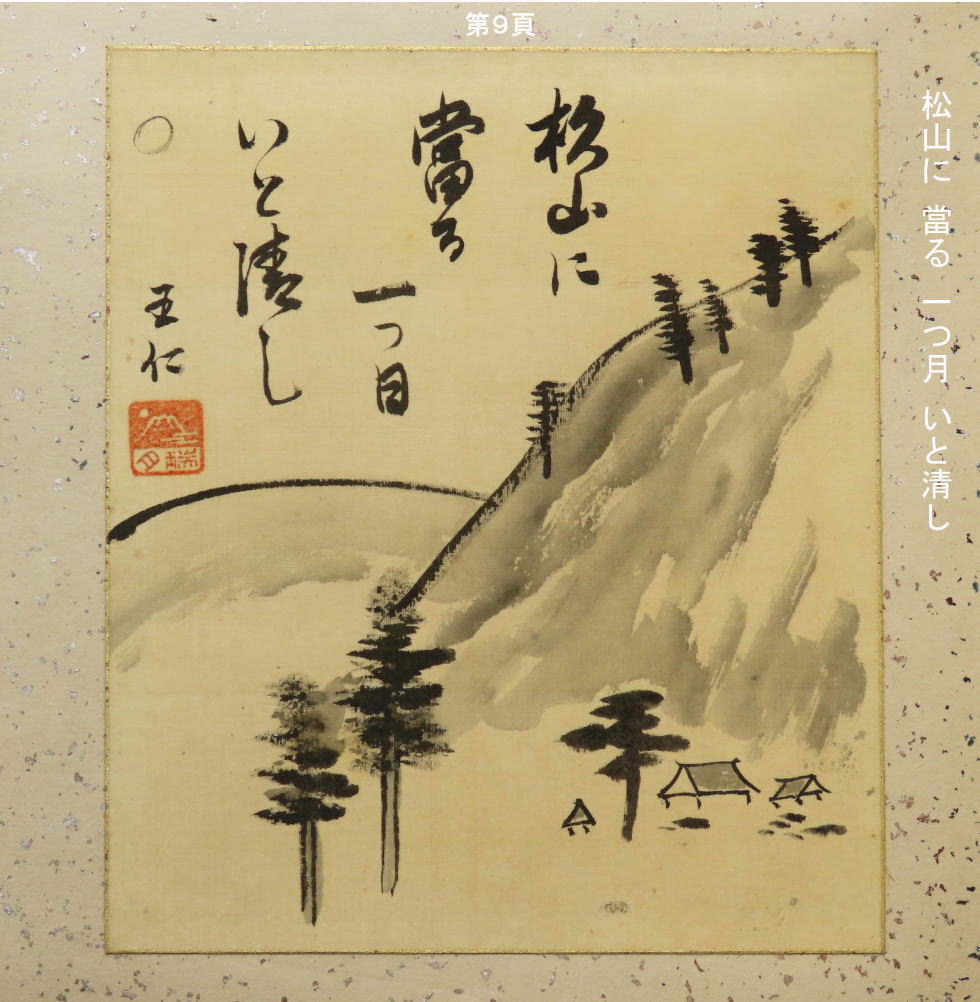 第9頁
松山に 當る 一つ月 いと清し
松山に
當る
一つ月
いと清し
○
王仁